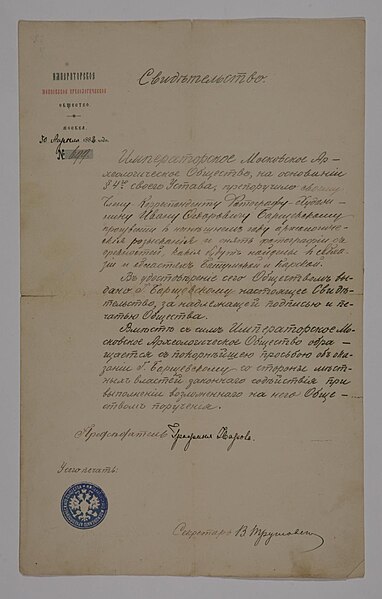 ИМПЕРАТОРСКОЕ
МОСКОВСКОЕ АРХЕОЛОГИЧЕСКОЕ
ОБЩЕСТВО.
МОСКВА.
30 Апрѣля 188 года.
№ 499
Свидѣтельство.
Императорское Московское Ар-
хеологическое Общество, на основаніи
§ 4го своего Устава, препоручило своему
Члену Корреспонденту Фотографу
Ивану Ѳедоровичу Борщевскому
произвести въ нынѣшнемъ году археологиче-
скія и снять фотографіи съ
древностей, какія будутъ найдены въ
и
Въ удостовѣреніе сего Обществомъ вы-
дано Г. Борщевскому настоящее Свидѣ-
тельство, за надлежащей подписью и пе-
чатью Общества.
Вмѣстѣ съ симъ Императорское Мо-
сковское Археологическое Общество обра-
щается съ покорнѣйшею просьбою объ ока-
заніи Г. Борщевскому со стороны мѣст-
ныхъ властей законнаго содѣйствія при
выполненіи возложеннаго на него Обще-
ствомъ порученія.
Предсѣдатель Графиня Уварова
Секретарь В. Трутовскій